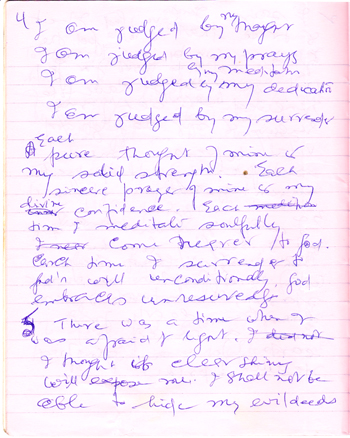 4 I am judged by my prayer
I am judged by my prays
I am judged by my meditation
I am judged by my dedication
I am judged by my surrender
Each
pure thought of mine is
my solid strength. Each
sincere prayer of mine is my
divine confidence. Each
time I meditate soulfully
I come nearer to God.
Each time I surrender to
God's will unconditionally, God
embraces unreservedly
5 There was a time when I
was afraid of light. I did not
I thought its clear shining
will expose me. I shall not be
able to hide my evil deeds